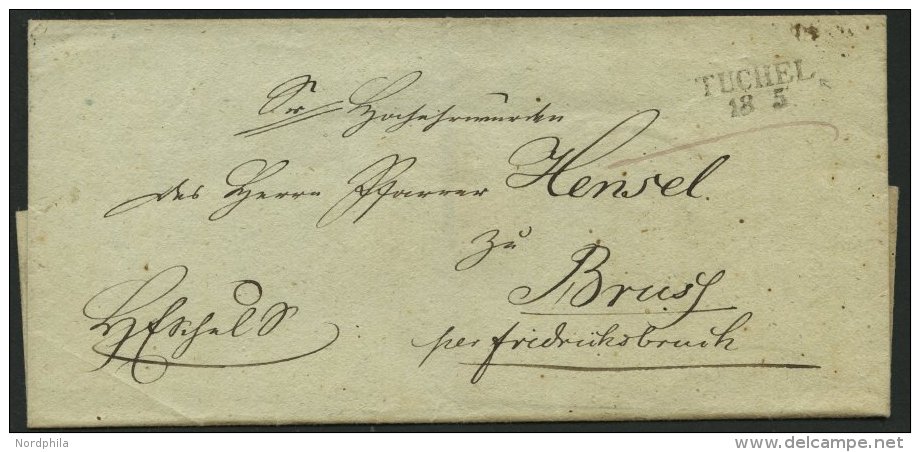 TUCHEL
18 5
Sr Hochehrwürden
des Herrn Pfarrer Hensel
zu
Brusß
per Fridrichsbruch
Nordphila
delcampe.net